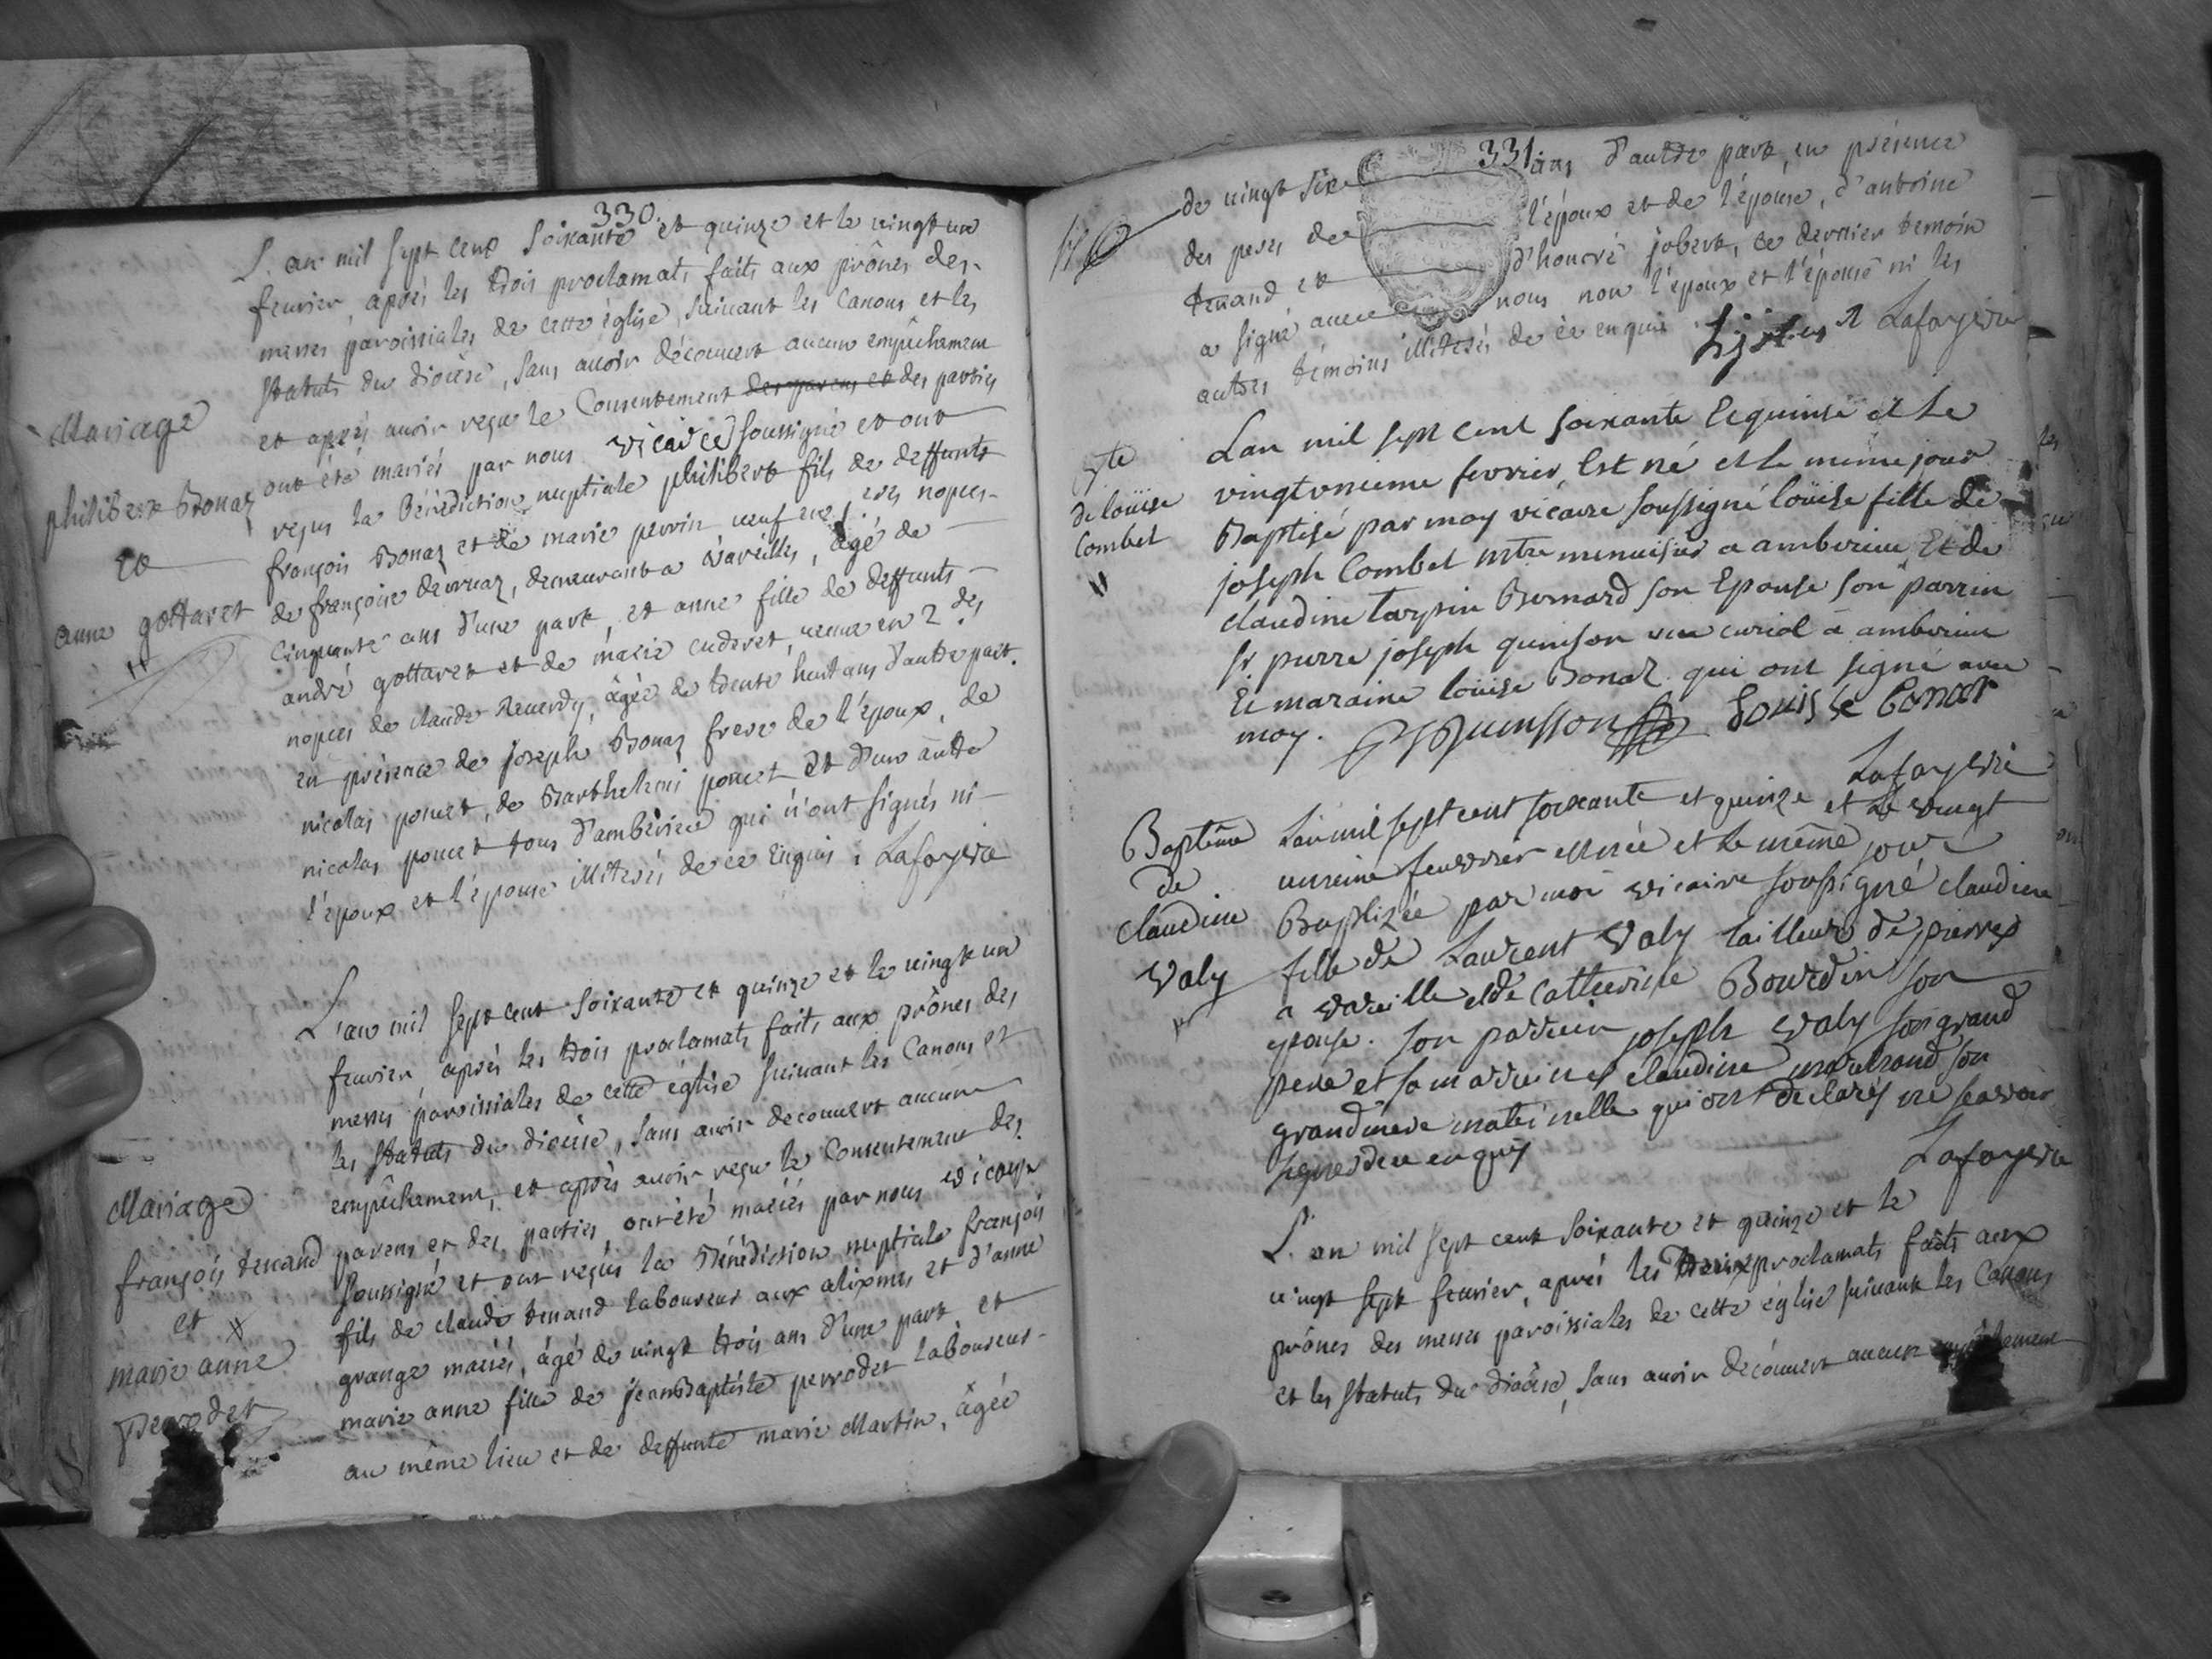 330.
L'an mil sept cent soixante et quinze et le vingt un
fevrier, après les trois proclamats faits aux prônes des
messes paroissiales de cette église, suivant les Canons et les
statuts du diocèse, sans avoir découvert aucun empêchement
et après avoir reçu le Consentement des parens et des parties
ont été mariés par nous vicaire soussigné et ont
reçus la Bénédiction nuptiale philibert fils de deffunts
françois Bonaz et de marie perrin veuf en 1.eres nopces
de françoise dervuaz, demeurant a Vareilles, âgé de
Cinquante ans d'une part, et anne fille de deffunts
andré gottaret et de marie cuderet, veuve en 2.des
nopces de claude Reverdy, âgée de trente huit ans d'autre part.
en présence de joseph Bonaz frere de l'époux, de
nicolas poncet, de Barthelemi poncet et d'un autre
nicolas poncet tous d'ambérieu qui n'ont signés ni
l'époux et l'épouse illiterés de ce Enquis. Lafayerie
Mariage
philibert Bonaz
et
anne gottaret
L'an mil sept cent soixante et quinze et le vingt un
fevrier, après les trois proclamats faits aux prônes des
messes paroissiales de cette église suivant les Canons et
les statuts du diocèse, sans avoir decouvert aucun
empêchement, et après avoir reçu le Consentement des
parens et des parties, ont été mariés par nous vicaire
soussigné et ont reçus la Bénédiction nuptiale françois
fils de claude tenand laboureur aux alixmes et d'anne
grange mariés, âgé de vingt trois ans d'une part et
marie anne fille de jean Baptiste perrodet laboureur
au même lieu et de deffunte marie Martin, âgée
Mariage
françois tenand
et
marie anne
perrodet
331
de vingt six ans d'autre part, en présence
des peres de l'époux et de l'épouse, d'antoine
tenand et d'honoré jobert, ce dernier temoin
a signé avec nous non l'époux et l'épouse ni les
autres témoins illiterés de ce enquis. Lafayerie
de loüise
Combet
Lan mil sept cent soixante Et quinse et le
vingt unieme fevrier, Est né et le mème jour
Baptisé par moy vicaire soussigné loüise fille de
joseph Combet mtre menuisier a amberieu, Et de
claudine tarpin Bernard son Epouse son parrin
sr. pierre joseph quinson curial à amberieu
Et maraine loüise Bonaz. qui ont signé avec
moy. PJ Quinsson Louise Bonar
Lafayerie
Baptême
de
claudine
Valy
L'an mil sept cent soixante et quinze et le vingt
unieme feuvrier est née et le même jour
Baptizée par moi vicaire soussigné claudine
fille de Laurent Valy tailleur de pierres
a vareille et de Catherine Bourdin son
epouse. Son parrein joseph Valy son grand
pere et sa marreine claudine son
grandmere maternelle qui ont declarés ne scavoir
signer de ce enquis
Lafayerie
L'an mil sept cent soixante et quinze et le
vingt sept fevrier, après les trois proclamats faits aux
prônes des messes paroissiales de cette église suivant les Canons
et les statuts du diocèse, sans avoir découvert aucun empêchement